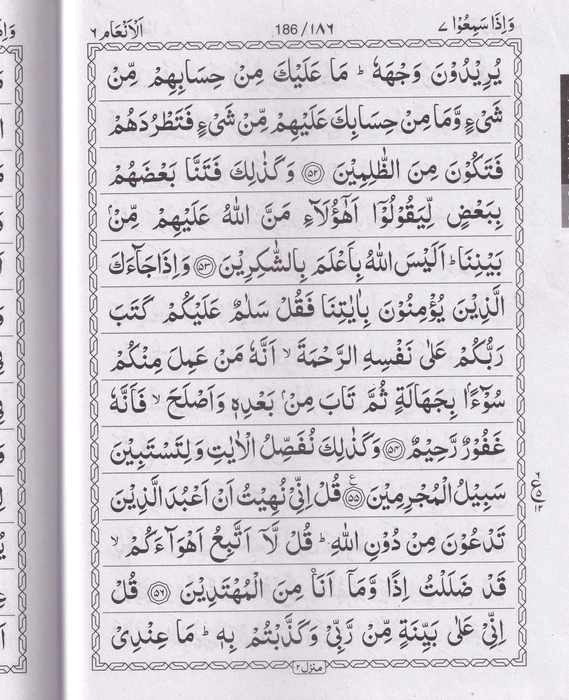 وَاِذَا سَمِعُوْا ٧
186/١٨٦
اَلْاَنْعَام ٦
يُرِيْدُوْنَ وَجْهَهٗ ؕ مَا عَلَيْكَ مِنْ حِسَابِهِمْ مِّنْ
شَىْءٍ وَّمَا مِنْ حِسَابِكَ عَلَيْهِمْ مِّنْ شَىْءٍ فَتَطْرُدَهُمْ
فَتَكُوْنَ مِنَ الظّٰلِمِيْنَ ۝۵۲ وَكَذٰلِكَ فَتَنَّا بَعْضَهُمْ
بِبَعْضٍ لِّيَقُوْلُوْۤا اَهٰۤؤُلَآءِ مَنَّ اللّٰهُ عَلَيْهِمْ مِّنْۢ
بَيْنِنَا ؕ اَلَيْسَ اللّٰهُ بِاَعْلَمَ بِالشّٰكِرِيْنَ ۝۵۳ وَاِذَا جَآءَكَ
الَّذِيْنَ يُؤْمِنُوْنَ بِاٰيٰتِنَا فَقُلْ سَلٰمٌ عَلَيْكُمْ كَتَبَ
رَبُّكُمْ عَلٰى نَفْسِهِ الرَّحْمَةَ ۙ اَنَّهٗ مَنْ عَمِلَ مِنْكُمْ
سُوْٓءًۢا بِجَهَالَةٍ ثُمَّ تَابَ مِنْۢ بَعْدِهٖ وَاَصْلَحَ ۙ فَاَنَّهٗ
غَفُوْرٌ رَّحِيْمٌ ۝۵۴ وَكَذٰلِكَ نُفَصِّلُ الْاٰيٰتِ وَلِتَسْتَبِيْنَ
سَبِيْلُ الْمُجْرِمِيْنَ ۝۵۵ ع قُلْ اِنِّىْ نُهِيْتُ اَنْ اَعْبُدَ الَّذِيْنَ
تَدْعُوْنَ مِنْ دُوْنِ اللّٰهِ ؕ قُلْ لَّاۤ اَتَّبِعُ اَهْوَآءَكُمْ ۙ
قَدْ ضَلَلْتُ اِذًا وَّمَاۤ اَنَا۠ مِنَ الْمُهْتَدِيْنَ ۝۵۶ قُلْ
اِنِّىْ عَلٰى بَيِّنَةٍ مِّنْ رَّبِّىْ وَكَذَّبْتُمْ بِهٖ ؕ مَا عِنْدِىْ
منزل ٢